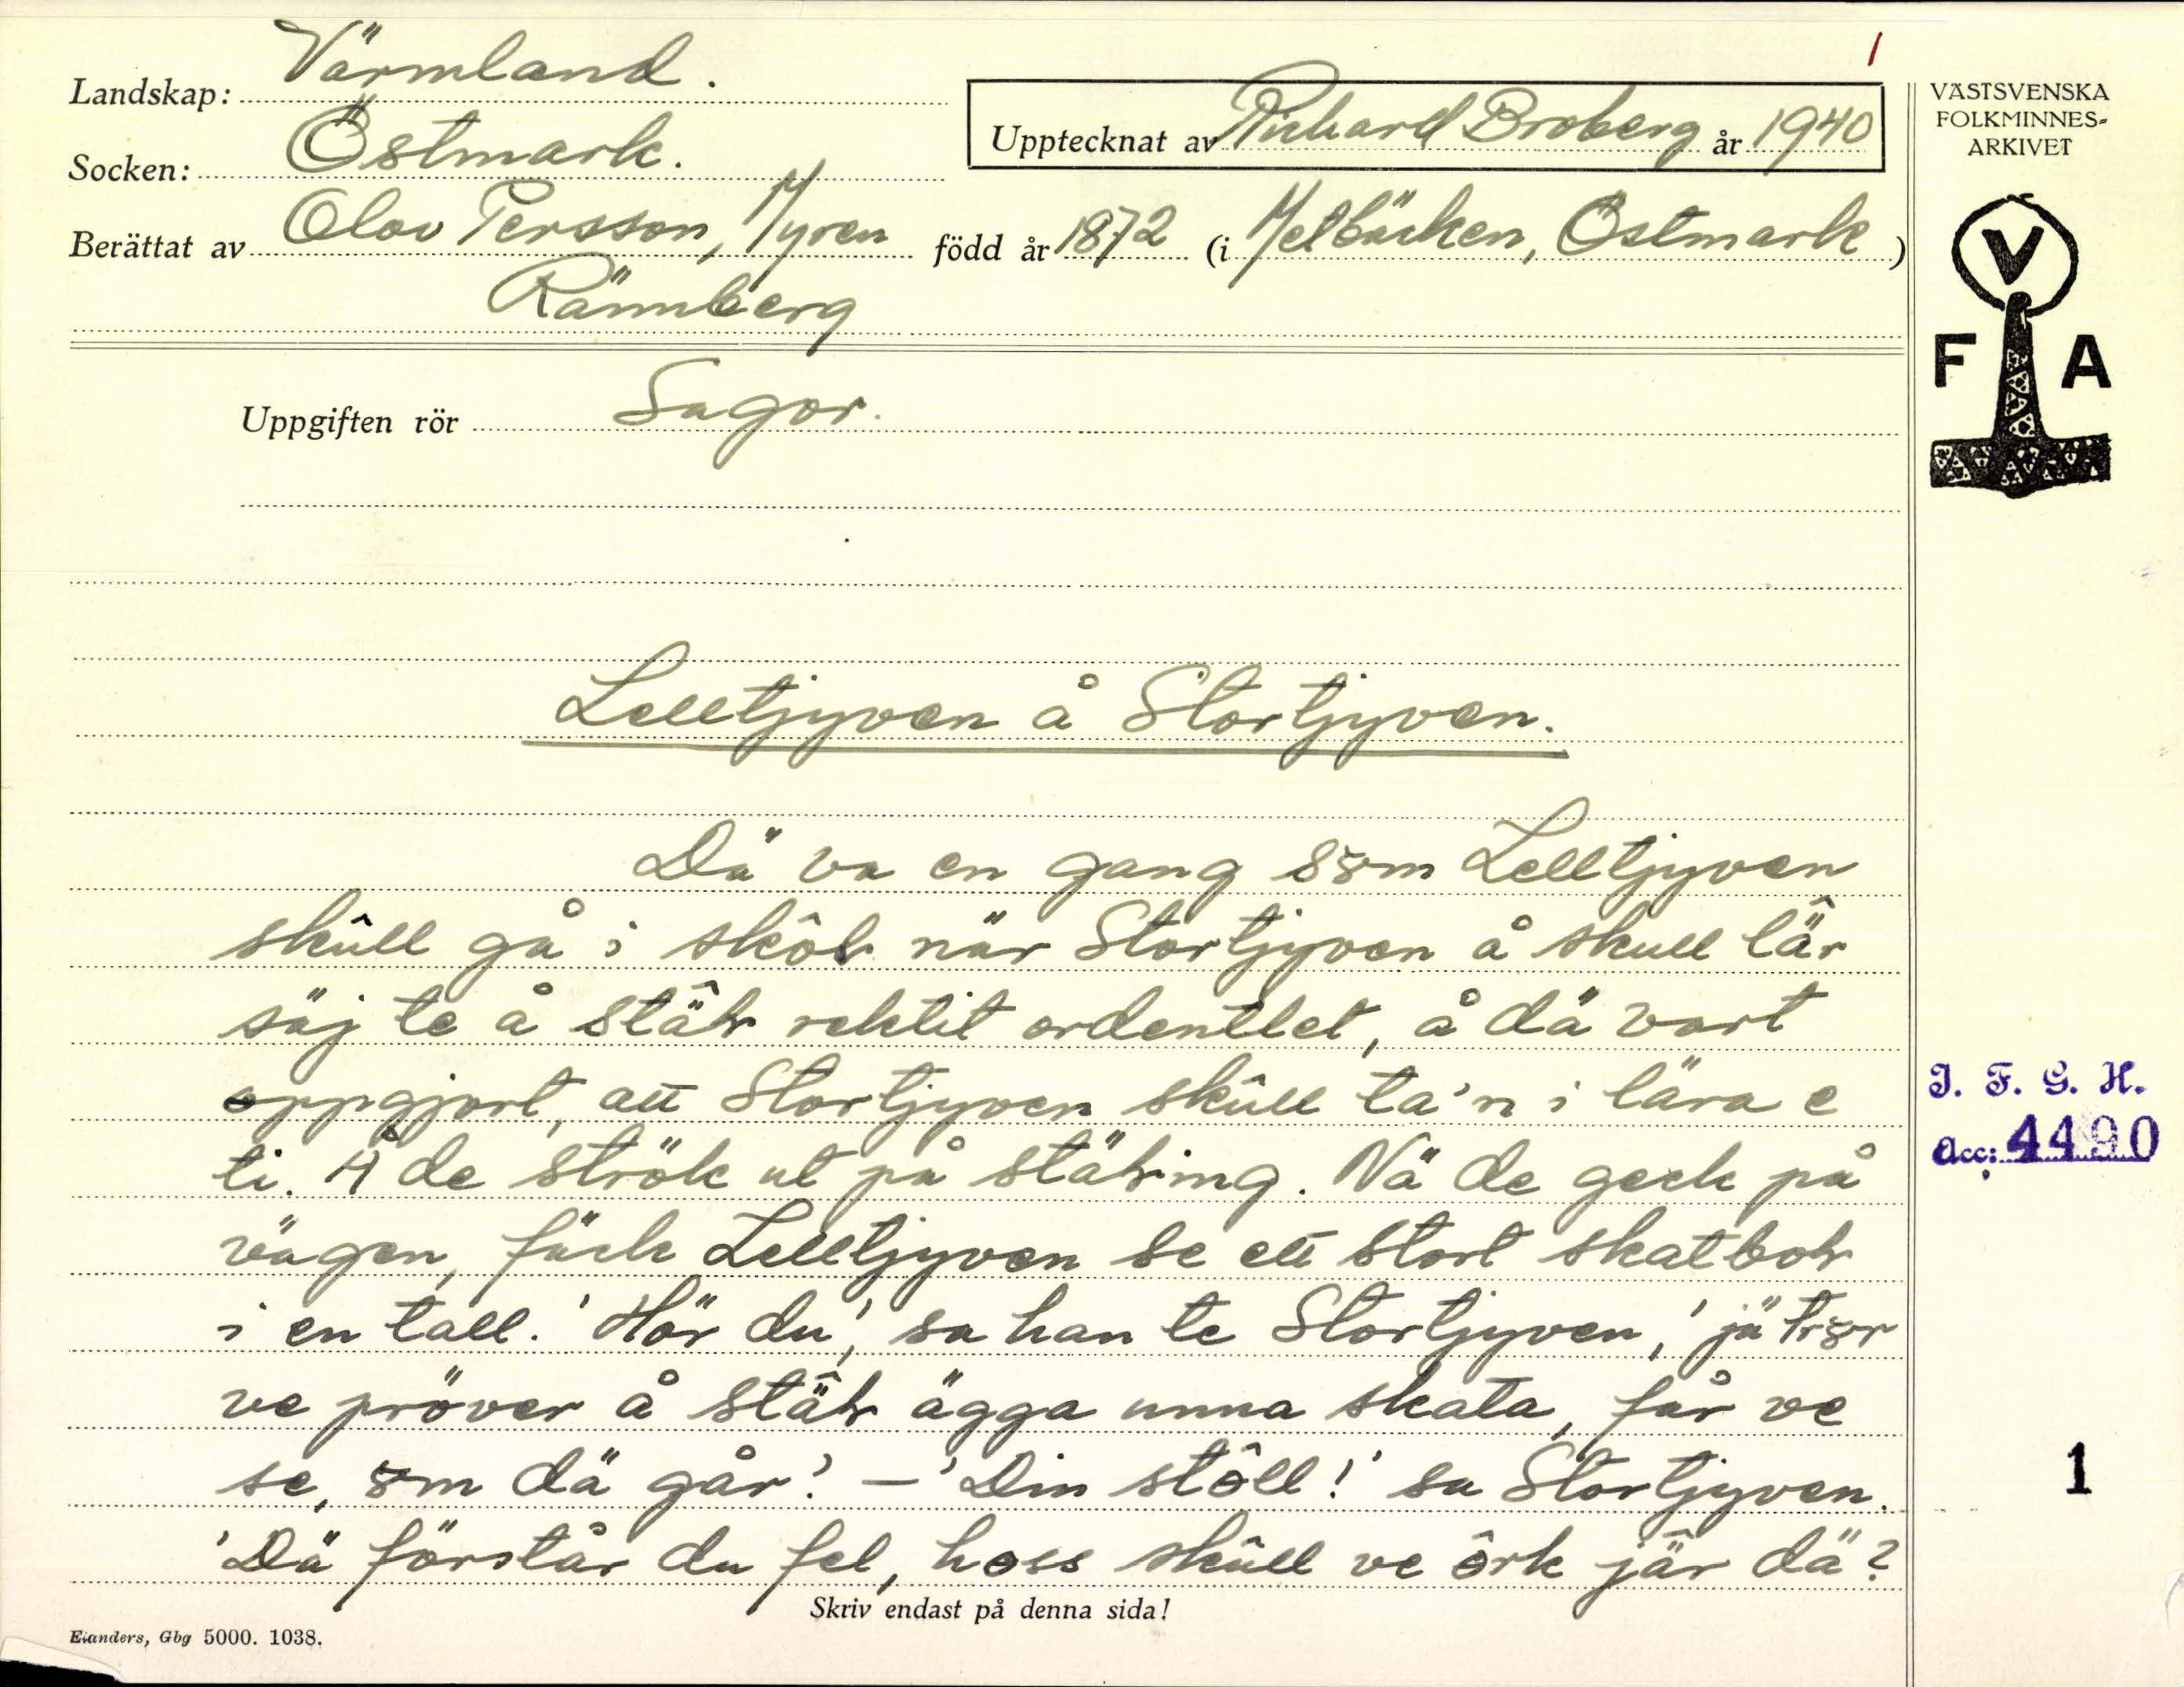 1
Landskap: Värmland.
Socken: Östmark.
Upptecknat av Richard Broberg år 1940
Berättat av Olov Persson, Myren född år 1872 (i Metbäcken, Östmark)
Rännberg
VÄSTSVENSKA
FOLKMINNES-
ARKIVET
V
F A
Uppgiften rör Sagor.
Lelltjyven å Stortjyven.
Dä va en gang som Lelltjyven
skûll gå i skôL når Stortjyven å skull lä̂r
säj te å stä̂L rektit ordentlet, å dä vart
oppgjort, att Stortjyven skûll ta'n i lära e
ti. Å de strök ut på stäLing. Nä de geck på
vägen, fäck Lelltjyven se ett stort skatboL
i en tall. 'Hör du', sa han te Stortjyven, 'jä tror
ve pröver å stä̂L ägga unna skata, får ve
se, om dä går.' – 'Din stôll!' sa Stortjyven.
'Dä förstår du fel, hoss skûll ve ôrk jä̂r dä?
I. F. G. H.
Acc: 4490
1
Skriv endast på denna sida!
Elanders, Gbg 5000. 1038.